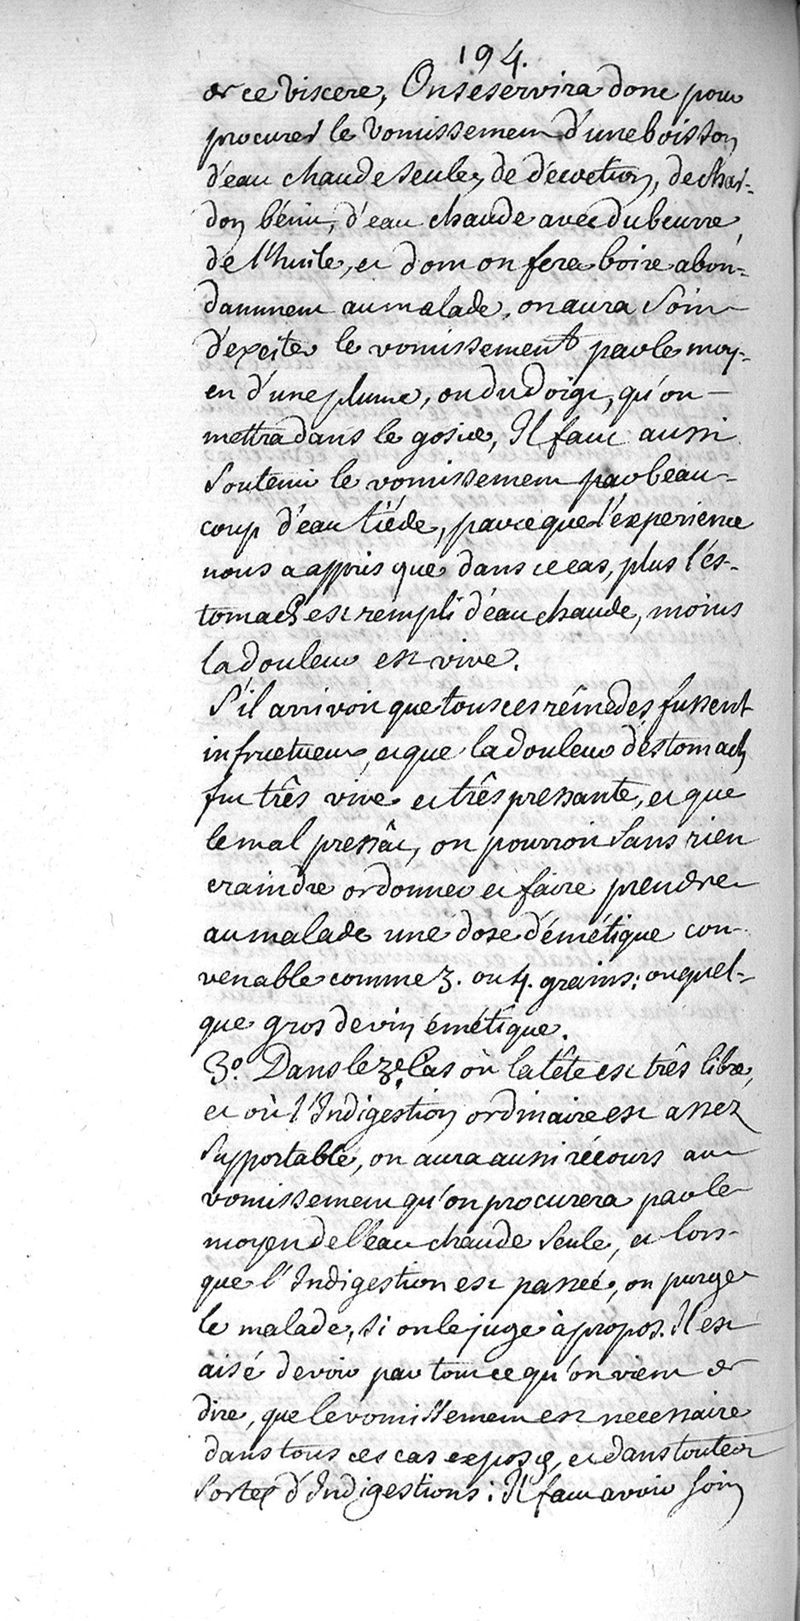 194.
de ce viscere, On se servira donc pour
procurer le vomissement d'une boisson
d'eau chaude seule, de décoction, de char-
don bénit, d'eau chaude avec du beurre,
de l'huile, et dont on fera boire abon-
damment au malade, on aura soin
d'exciter le vomissement par le moy-
en d'une plume, ou du doigt, qu'on
mettra dans le gosier, Il faut aussi
soutenir le vomissement par beau-
coup d'eau tiéde, parce que l'experience
nous a appris que dans ce cas, plus l'és-
tomach est rempli d'eau chaude, moins
la douleur est vive.
S'il arrivoit que tous ces rémedes fussent
infructueux, et que la douleur d'éstomach
fut três vive et três pressante, et que
le mal pressât, on pourroit sans rien
craindre ordonner et faire prendre
au malade une dose d'émétique con-
venable comme 3. ou 4. grains: ou quel-
que gros de vin émétique.
3.° Dans le 3.e Cas où la tête est três libre,
et où l'Indigestion ordinaire est assez
supportable, on aura aussi récours au
vomissement qu'on procurera par le
moyen de l'eau chaude seule, et lors-
que l'Indigestion est passée, on purge
le malade, si on le juge à propos. Il est
aisé de voir par tout ce qu'on vient de
dire, que le vomissement est necessaire
dans tous ces cas exposés, et dans toutes
sortes d'Indigestions: Il faut avoir soin